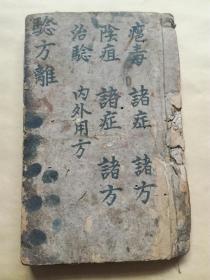 瘡毒 諸症 諸方
陰疽 諸症 諸方
治驗 內外用方
驗方離